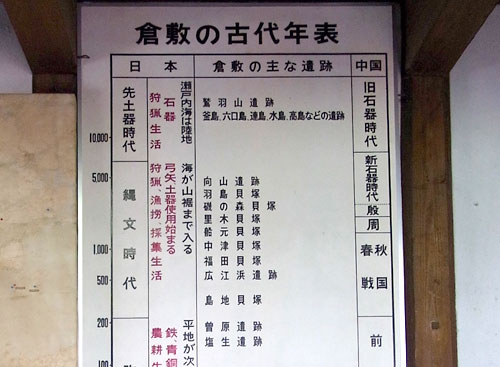 倉敷の古代年表
日本
倉敷の主な遺跡
中国
先土器時代
狩猟生活
石器
瀬戸内海は陸地
鷲羽山遺跡
釜島、六口島、連島、水島、高島などの遺跡
旧石器時代
10,000
5,000
縄文時代
狩猟、漁撈、採集生活
弓矢土器使用始まる
海が山裾まで入る
向山遺跡
羽島貝塚
磯の森貝塚
里木貝塚
船元貝塚
中津貝塚
福田貝塚
広江浜遺跡
島地貝塚
新石器時代
殷
周
春秋
戦国
1,000
500
200
農耕生
鉄、青銅
平地が次
曽原遺跡
塩生遺跡
前
100